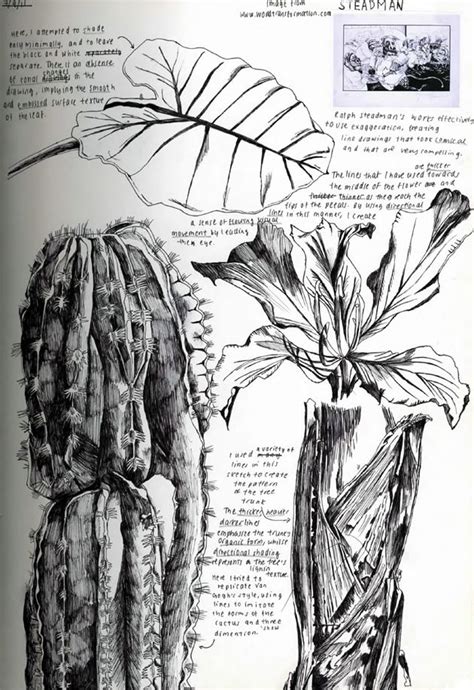 Image from
www.woodtransformation.com
STEADMAN
Here, I attempted to shade
only minimally, and to leave
the black and white
separate. There is an absence
of tonal changes in the
drawing, implying the smooth
and embossed surface texture
of the leaf.
Ralph Steadman's works effectively
to use exaggeration, creating
line drawings that look comical
and that are very compelling.
The lines that I have used towards
the middle of the flower are thicker and
thicker as they reach the
tips of the petals. By using directional
lines in this manner, I create
a sense of flowing visual
movement by leading
the eye.
I used a variety of
lines in this
sketch to create
the pattern
of the tree
trunk
The thicker, heavier
darker lines
emphasise the trunk's
organic form, whilst
directional shading
represents the tree's
texture
Here I tried to
replicate Van
Gogh's style, using
lines to imitate
the forms of the
cactus and show three
dimention.